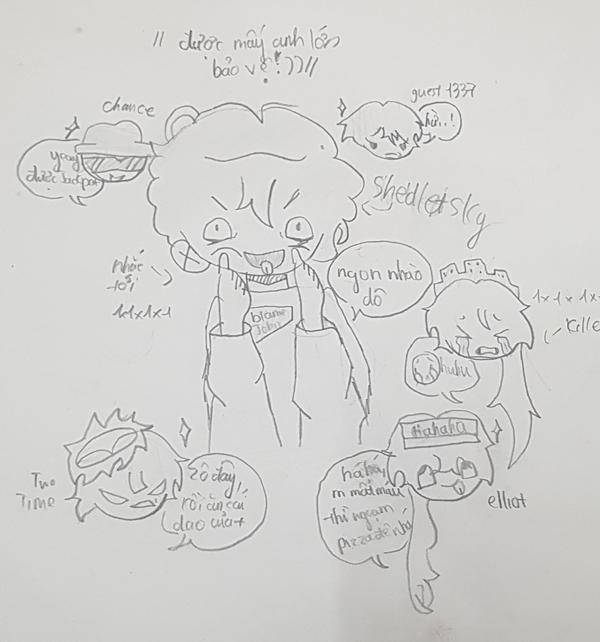 // được mấy anh lớn
bảo vệ !?))//
chance
yeay
được Jackpot
guest 1337
hừ..!
Shedletsky
nhóc
tôi
1x1x1x1
ngon nhào
dô
blame
John
1x1x1x1
Killer
huhu
Two
Time
zô đây,
rồi ăn cái
dao của t
Hahaha
há há,
m mất máu
thì ngậm
pizza đê nhá
elliot